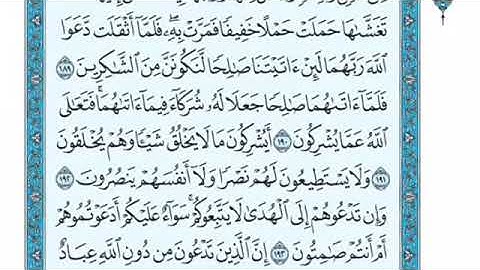 تَغَشَّىٰهَا حَمَلَتْ حَمْلًا خَفِيفًا فَمَرَّتْ بِهِۦ ۖ فَلَمَّآ أَثْقَلَت دَّعَوَا
ٱللَّهَ رَبَّهُمَا لَئِنْ ءَاتَيْتَنَا صَٰلِحًا لَّنَكُونَنَّ مِنَ ٱلشَّٰكِرِينَ ١٨٩
فَلَمَّآ ءَاتَىٰهُمَا صَٰلِحًا جَعَلَا لَهُۥ شُرَكَآءَ فِيمَآ ءَاتَىٰهُمَا ۚ فَتَعَٰلَى
ٱللَّهُ عَمَّا يُشْرِكُونَ ١٩٠ أَيُشْرِكُونَ مَا لَا يَخْلُقُ شَيْـًٔا وَهُمْ يُخْلَقُونَ
١٩١ وَلَا يَسْتَطِيعُونَ لَهُمْ نَصْرًا وَلَآ أَنفُسَهُمْ يَنصُرُونَ ١٩٢
وَإِن تَدْعُوهُمْ إِلَى ٱلْهُدَىٰ لَا يَتَّبِعُوكُمْ ۚ سَوَآءٌ عَلَيْكُمْ أَدَعَوْتُمُوهُمْ
أَمْ أَنتُمْ صَٰمِتُونَ ١٩٣ إِنَّ ٱلَّذِينَ تَدْعُونَ مِن دُونِ ٱللَّهِ عِبَادٌ